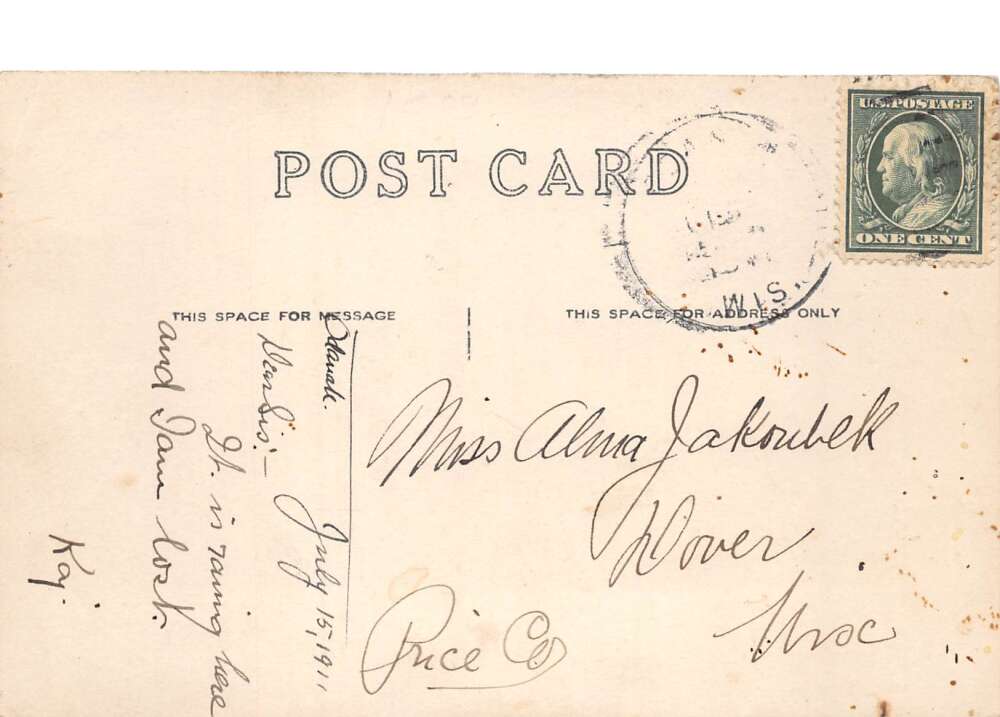 POST CARD
U.S. POSTAGE
ONE CENT
WIS.
THIS SPACE FOR MESSAGE
THIS SPACE FOR ADDRESS ONLY
Odanah.
July 15, 1911
Dear Sis:—
It. is raning here
and I am lost.
Kaj.
Miss Alma Jakoubek
Dover
Price Co
Wisc